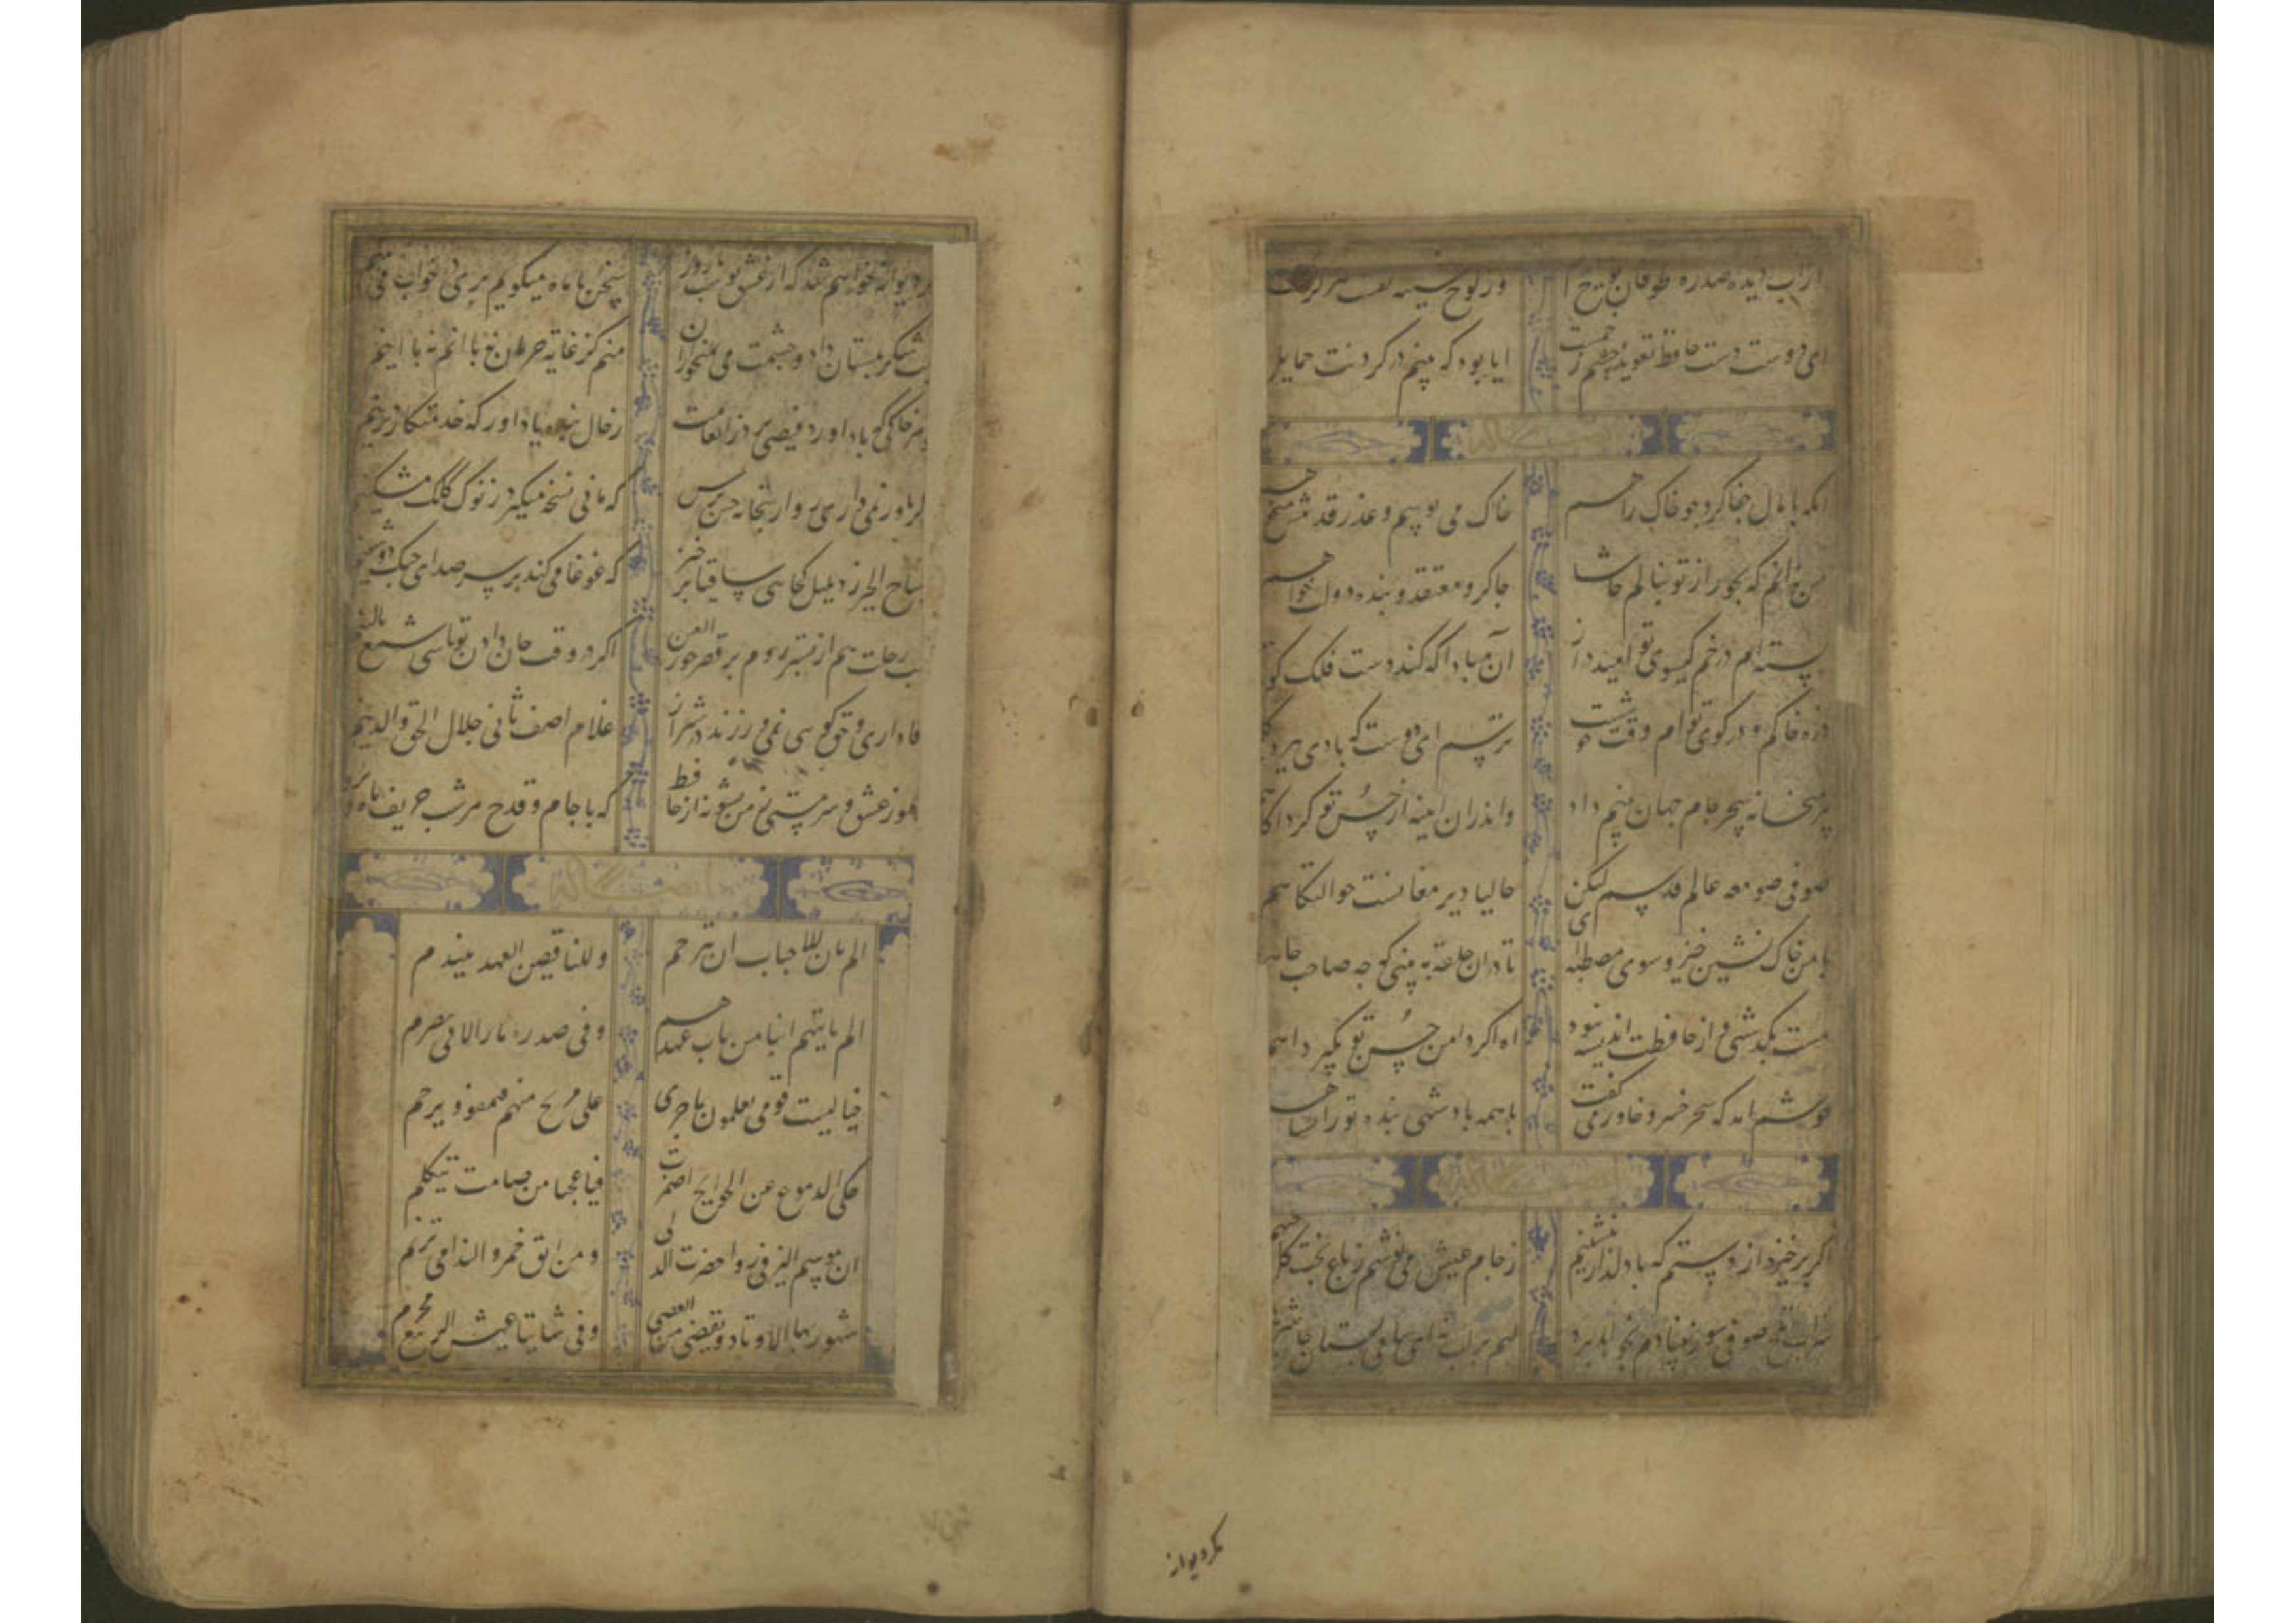 از آب دیده صدره طوفان نوح وز لوح سینه نقشت هرگز نگشت
ای دوست دست حافظ تعویذ چشم زخمست ایا بود که بینم در گردنت حمایل
انکه پامال جفا کرد چو خاک راهم خاک می بوسم و عذر قدمش میخواهم
من نه انم که بجور از تو بنالم حاشا چاکر و معتقد و بنده دولت خواهم
بسته ام در خم کیسوی تو امید دراز آن مبادا که کند دست فلک
ذره خاکم و در کوی توام وقت خوشست ترسم ای دوست که بادی ببرد
پیر میخانه سحر جام جهان بینم داد واندران اینه از حسن تو کرد
صوفی صومعه عالم قدسم لیکن حالیا دیر مغانست حوالتکاهم
با من خاک نشین خیز و سوی مصطبه ای تا دران حلقه ببینی که چه صاحب جاهم
مست بگذشتی و از حافظت اندیشه نبود اه اکر دامن حسن تو بگیرد اهم
خوشم امد که سحر خسرو خاور می کفت با همه پادشهی بنده توران شاهم
اکر برخیزد از دستم که با دلدار بنشینم ز جام عیش می نوشم ز باغ بخت کل چینم
شراب تلخ صوفی سوز بنیادم بخواهد برد لبم بر لب نه ای ساقی و بستان جان شیرینم
مکر دیوانه
مکر دیوانه خواهم شد که از عشق تو شب تا روز سخن با ماه میکویم پری در خواب می بینم
لبت شکر بمستان داد و چشمت می بمیخواران منم کز غایة حرمان نه با انم نه با اینم
هر خاکی که باد اورد فیضی برد از انعامت ز حال بنده یاد اور که خدمتکار دیرینم
کر باور نمی داری رو از بتخانه چین پرس که مانی نسخه میکیرد ز نوک کلک مشکینم
صباح الخیر زد بلبل کجایی ساقیا برخیز که غوغا می کند بر سر صدای چنک دوشینم
شب رحلت هم از بستر روم بر قصر حور العین اکر در وقت جان دادن تو باشی شمع بالینم
وفاداری و حق کویی نمی ورزند در شیراز غلام اصف ثانی جلال الحق والدینم
رموز عشق و سرمستی ز من بشنو نه از حافظ که با جام و قدح هر شب حریف ماه و پروینم
الم یان للاحباب ان یترحم وللناقضین العهد یندم
الم یاتیهم انبا من بات عهدهم وفی صدره نار الاسی یضرم
فیالیت قومی یعلمون بما جری علی مرتج منهم فیعفو و یرحم
حکی الدموع عن الجوانح اضمرت فیا عجبا من صامت یتکلم
وفی شاننا عیش الربیع محرم